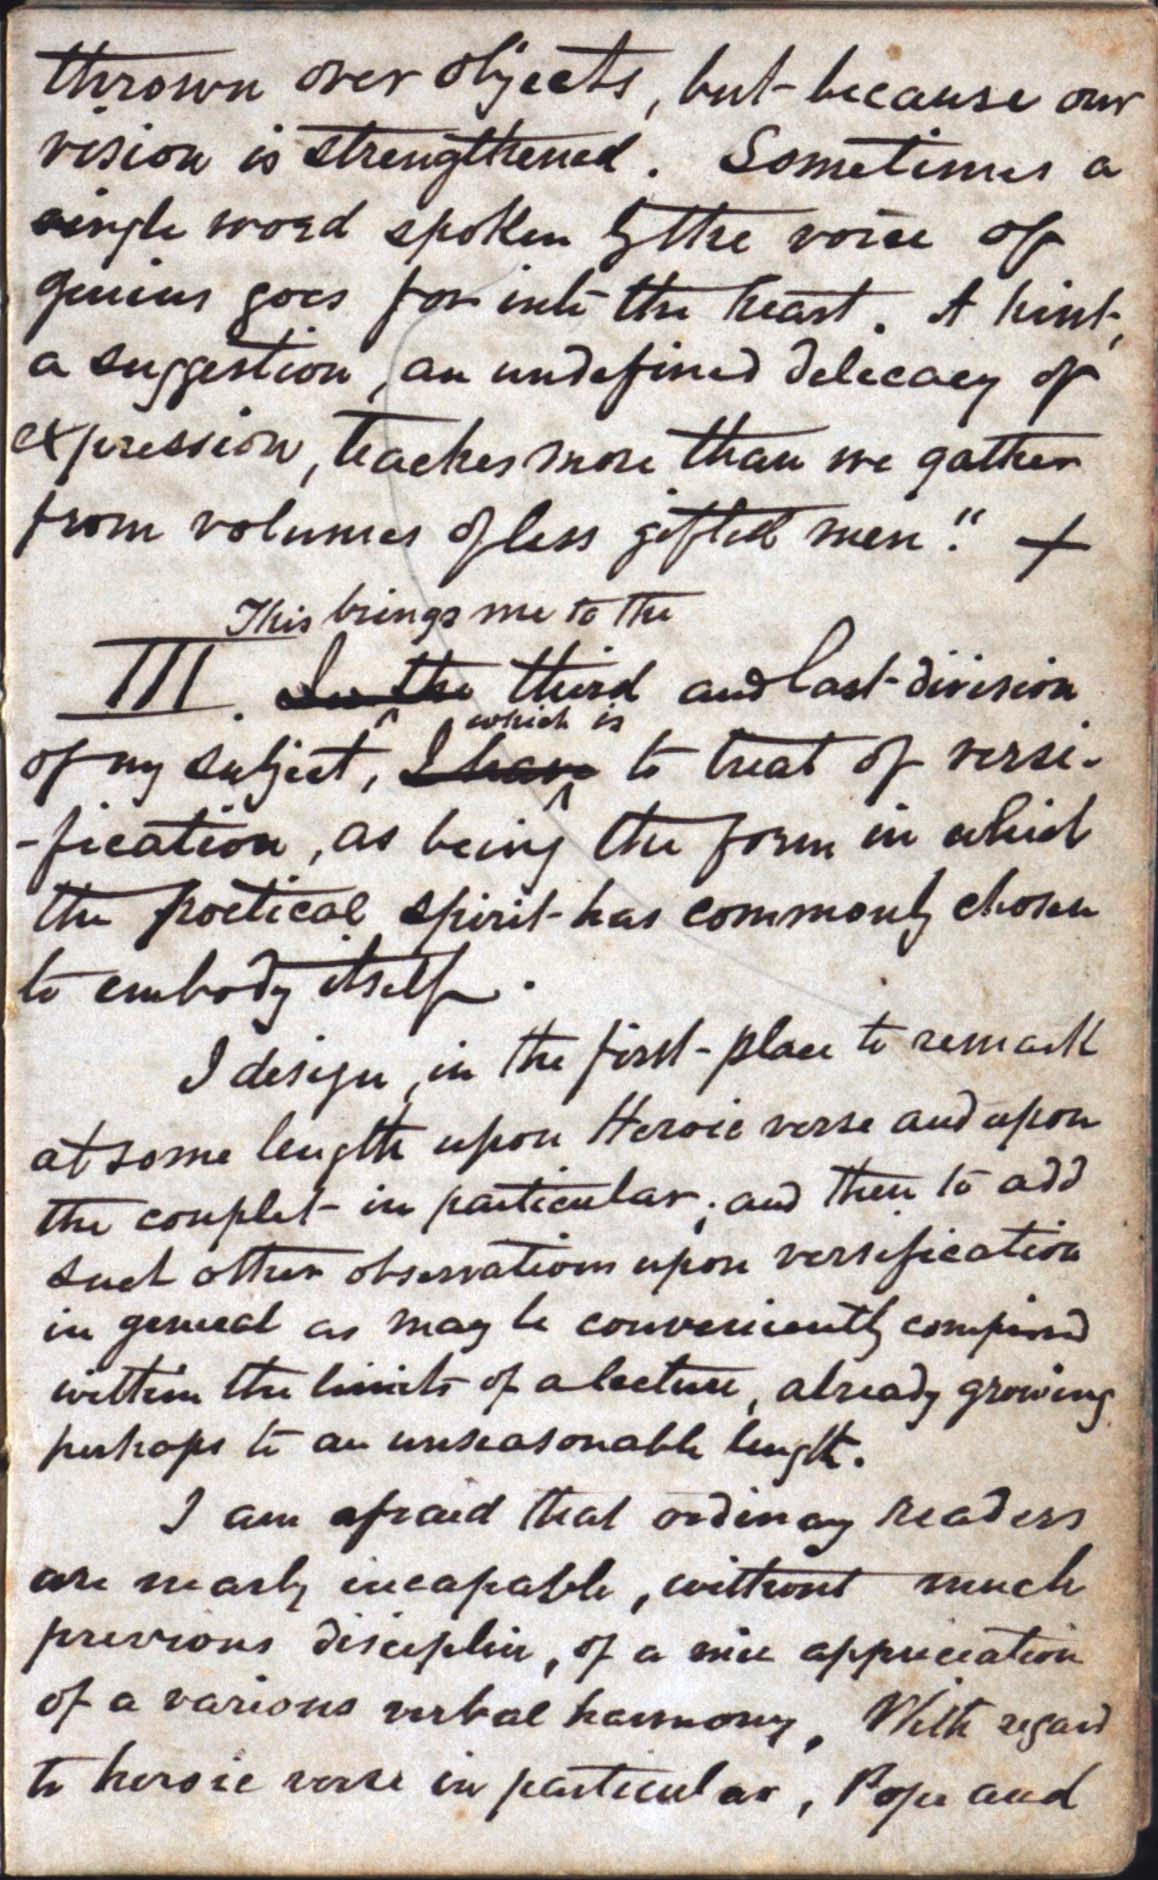 thrown over objects, but because our
vision is strengthened. Sometimes a
single word spoken by the voice of
genius goes far into the heart. A hint,
a suggestion, an undefined delicacy of
expression, teaches more than we gather
from volumes of less gifted men." +
This brings me to the
III. In the third and last division
which is
of my subject, I have to treat of versi-
-fication, as being the form in which
the poetical spirit has commonly chosen
to embody itself.
I design, in the first place to remark
at some length upon Heroic verse and upon
the couplet in particular; and then to add
such other observations upon versification
in general as may be conveniently comprised
within the limits of a lecture, already growing
perhaps to an unseasonable length.
I am afraid that ordinary readers
are nearly incapable, without much
previous disciplin, of a nice appreciation
of a various verbal harmony. With regard
to heroic verse in particular, Pope and